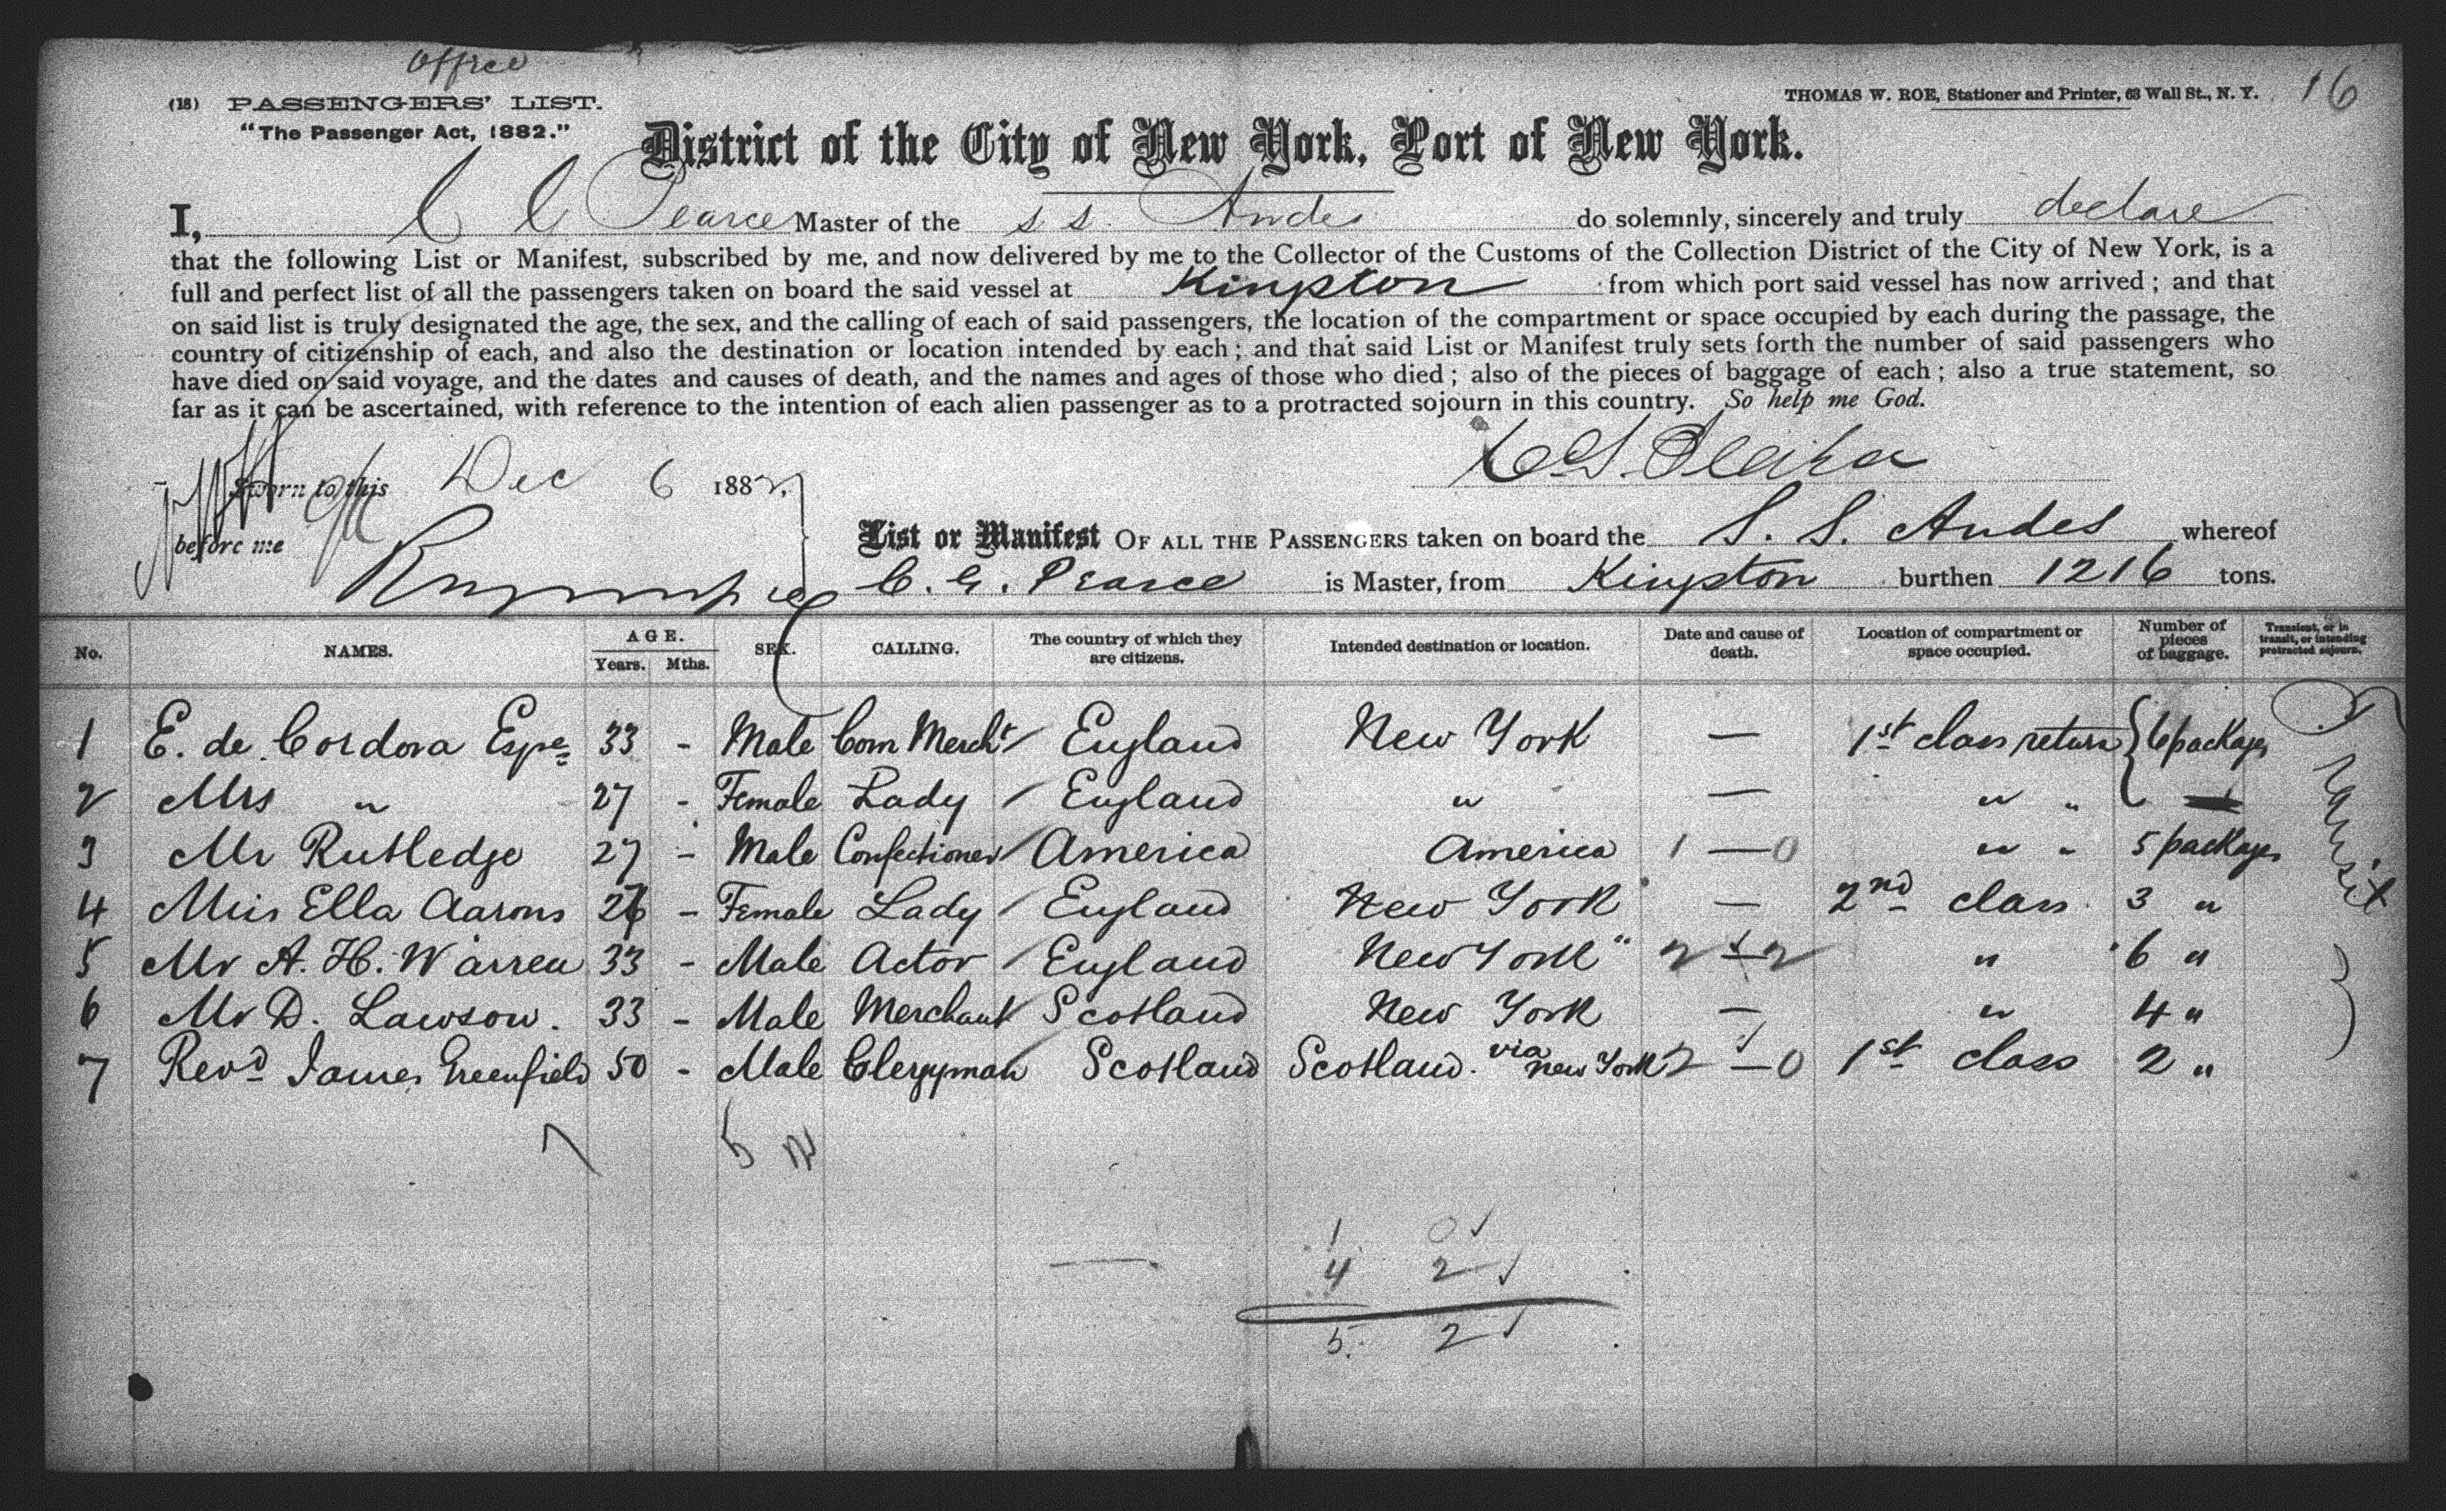 Office
(18) PASSENGERS' LIST.
"The Passenger Act, 1882."
THOMAS W. ROE, Stationer and Printer, 63 Wall St., N. Y.
16
District of the City of New York, Port of New York.
I, C G Pearce Master of the s s. Andes do solemnly, sincerely and truly declare
that the following List or Manifest, subscribed by me, and now delivered by me to the Collector of the Customs of the Collection District of the City of New York, is a
full and perfect list of all the passengers taken on board the said vessel at Kingston from which port said vessel has now arrived; and that
on said list is truly designated the age, the sex, and the calling of each of said passengers, the location of the compartment or space occupied by each during the passage, the
country of citizenship of each, and also the destination or location intended by each; and that said List or Manifest truly sets forth the number of said passengers who
have died on said voyage, and the dates and causes of death, and the names and ages of those who died; also of the pieces of baggage of each; also a true statement, so
far as it can be ascertained, with reference to the intention of each alien passenger as to a protracted sojourn in this country. So help me God.
Sworn to this Dec 6 1882,
before me
List or Manifest OF ALL THE PASSENGERS taken on board the S. S. Andes whereof
C. G. Pearce is Master, from Kingston burthen 1216 tons.
No. NAMES. AGE. Years. Mths. SEX. CALLING. The country of which they are citizens. Intended destination or location. Date and cause of death. Location of compartment or space occupied. Number of pieces of baggage. Transient, or in transit, or intending protracted sojourn.
1 E. de Cordova Esqe 33 - Male Com Mercht / England New York — 1st class return 6 packages
2 Mrs " 27 - Female Lady / England " — " "
3 Mr Rutledge 27 - Male Confectioner / America America 1 — 0 " " 5 packages
4 Miss Ella Aarons 26 - Female Lady / England New York — 2nd class 3 "
5 Mr A. H. Warren 33 - Male Actor / England New York " 2 — 2 " 6 "
6 Mr D. Lawson. 33 - Male Merchant / Scotland New York — " 4 "
7 Revd James Greenfield 50 - Male Clergyman / Scotland Scotland. via New York 2 — 0 1st class 2 "
Transit
7 5
1 0 ✓
4 2 ✓
5. 2 ✓